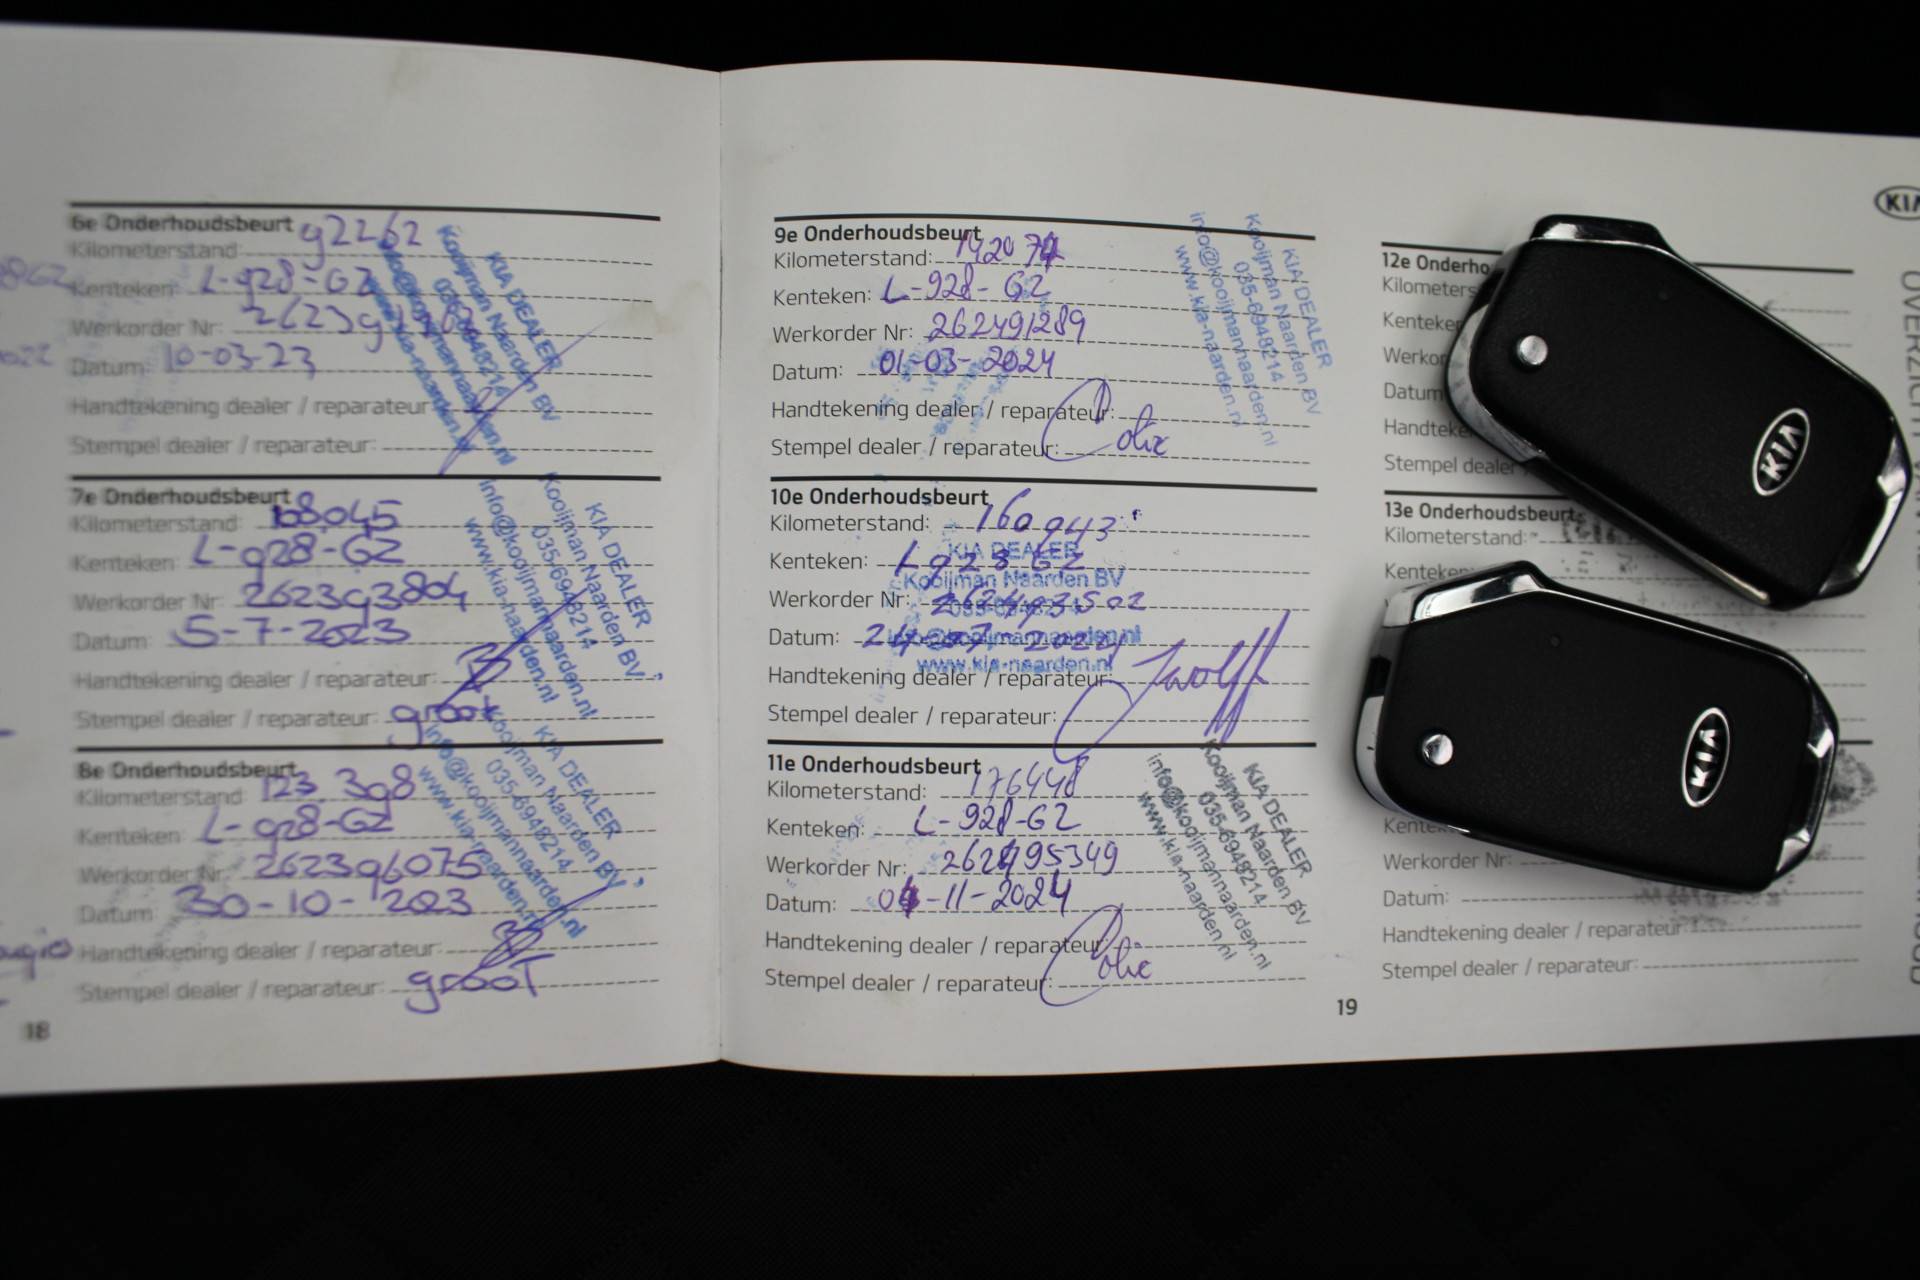 6e Onderhoudsbeurt
Kilometerstand: 92262
Kenteken: L-928-GZ
Werkorder Nr:
Datum: 10-03-23
Handtekening dealer / reparateur:
Stempel dealer / reparateur:
KIA DEALER
Kooijman Naarden BV
035-6948214
info@kooijmannaarden.nl
www.kia-naarden.nl
7e Onderhoudsbeurt
Kilometerstand: 108045
Kenteken: L-928-GZ
Werkorder Nr: 262393804
Datum: 5-7-2023
Handtekening dealer / reparateur:
Stempel dealer / reparateur: groot
KIA DEALER
Kooijman Naarden BV
035-6948214
info@kooijmannaarden.nl
www.kia-naarden.nl
8e Onderhoudsbeurt
Kilometerstand: 123.398
Kenteken: L-928-GZ
Werkorder Nr: 262396075
Datum: 30-10-
Handtekening dealer / reparateur:
Stempel dealer / reparateur: grooT
KIA DEALER
Kooijman Naarden BV
035-6948214
info@kooijmannaarden.nl
www.kia-naarden.nl
18
9e Onderhoudsbeurt
Kilometerstand:
Kenteken: L-928-GZ
Werkorder Nr: 262491289
Datum: 01-03-2024
Handtekening dealer / reparateur:
Stempel dealer / reparateur:
KIA DEALER
Kooijman Naarden BV
035-6948214
info@kooijmannaarden.nl
www.kia-naarden.nl
10e Onderhoudsbeurt
Kilometerstand: 160943
Kenteken: L 928 GZ
Werkorder Nr: 262493502
Datum:
Handtekening dealer / reparateur:
Stempel dealer / reparateur:
KIA DEALER
Kooijman Naarden BV
035-6948214
info@kooijmannaarden.nl
www.kia-naarden.nl
11e Onderhoudsbeurt
Kilometerstand: 176448
Kenteken: L-928-GZ
Werkorder Nr: 262495349
Datum: 04-11-2024
Handtekening dealer / reparateur:
Stempel dealer / reparateur:
KIA DEALER
Kooijman Naarden BV
035-6948214
info@kooijmannaarden.nl
www.kia-naarden.nl
19
12e Onderho
Kilometers
Kenteken
Werkor
Datum
Handteke
Stempel dealer
13e Onderhoudsbeurt
Kilometerstand:
Kenteken
Kente
Werkorder Nr:
Datum:
Handtekening dealer / reparateur:
Stempel dealer / reparateur:
KIA
KIA
KIA
OVERZICHT